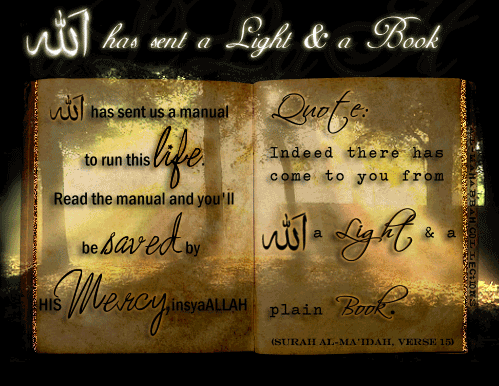 الله has sent a Light & a Book
الله has sent us a manual
to run this life.
Read the manual and you'll
be saved by
HIS Mercy, insyaALLAH
Quote:
Indeed there has
come to you from
الله a Light & a
plain Book.
(SURAH AL-MA'IDAH, VERSE 15)